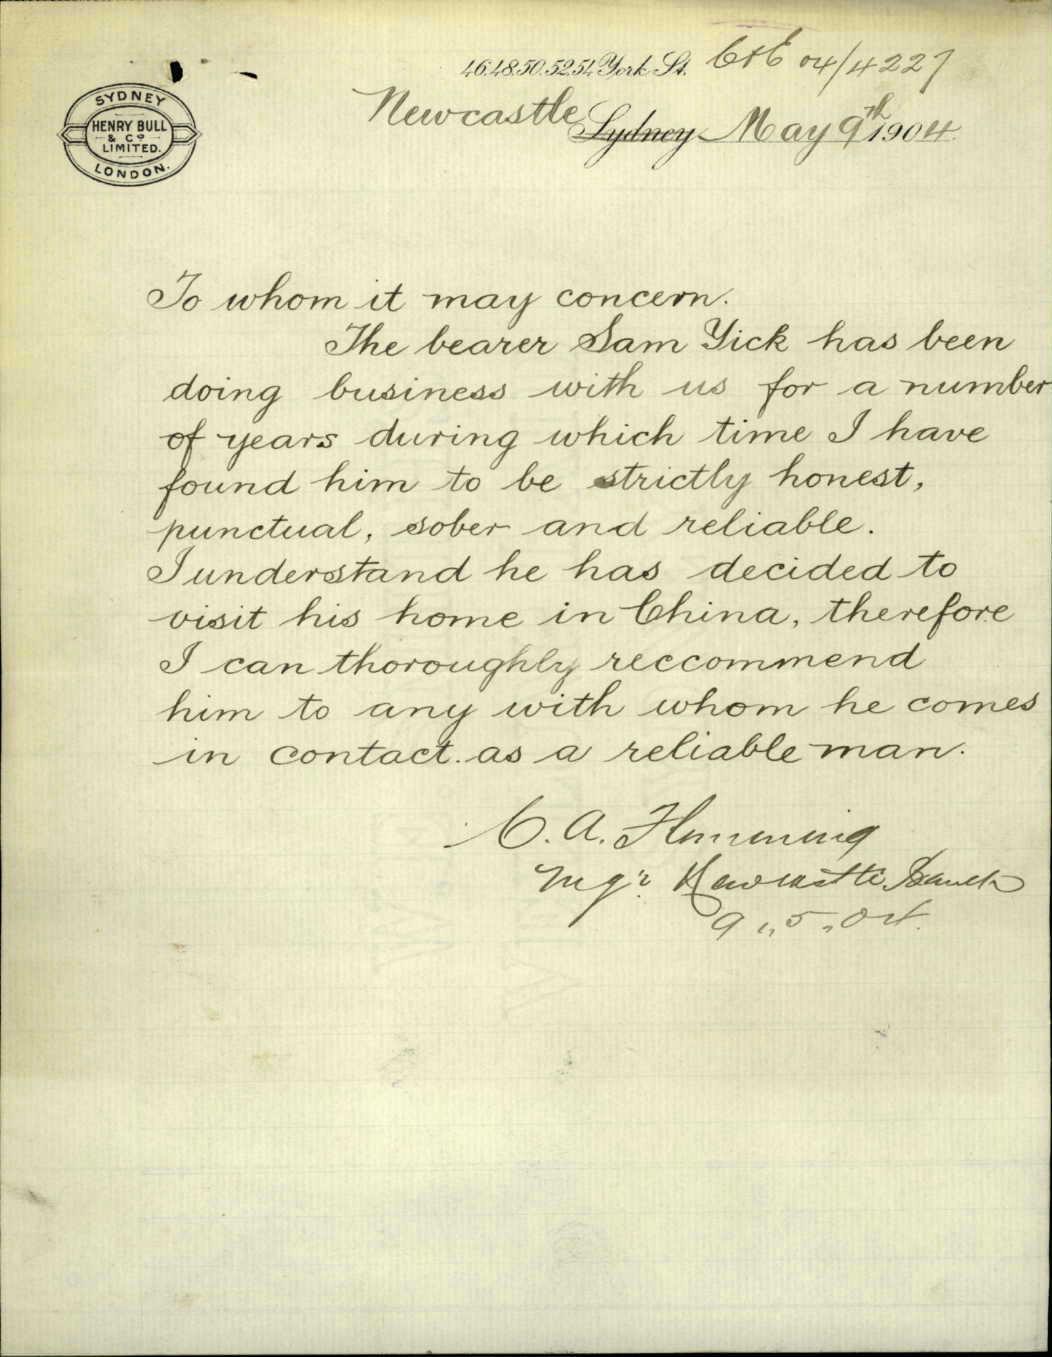 46.48.50.52.54 York St. C & E 04/4227
Newcastle Sydney May 9th 1904
SYDNEY
HENRY BULL
& Co
LIMITED.
LONDON.
To whom it may concern.
The bearer Sam Yick has been
doing business with us for a number
of years during which time I have
found him to be strictly honest,
punctual, sober and reliable.
I understand he has decided to
visit his home in China, therefore
I can thoroughly reccommend
him to any with whom he comes
in contact. as a reliable man.
C. A. Flemming
Mgr. Newcastle Branch
9.5.04.